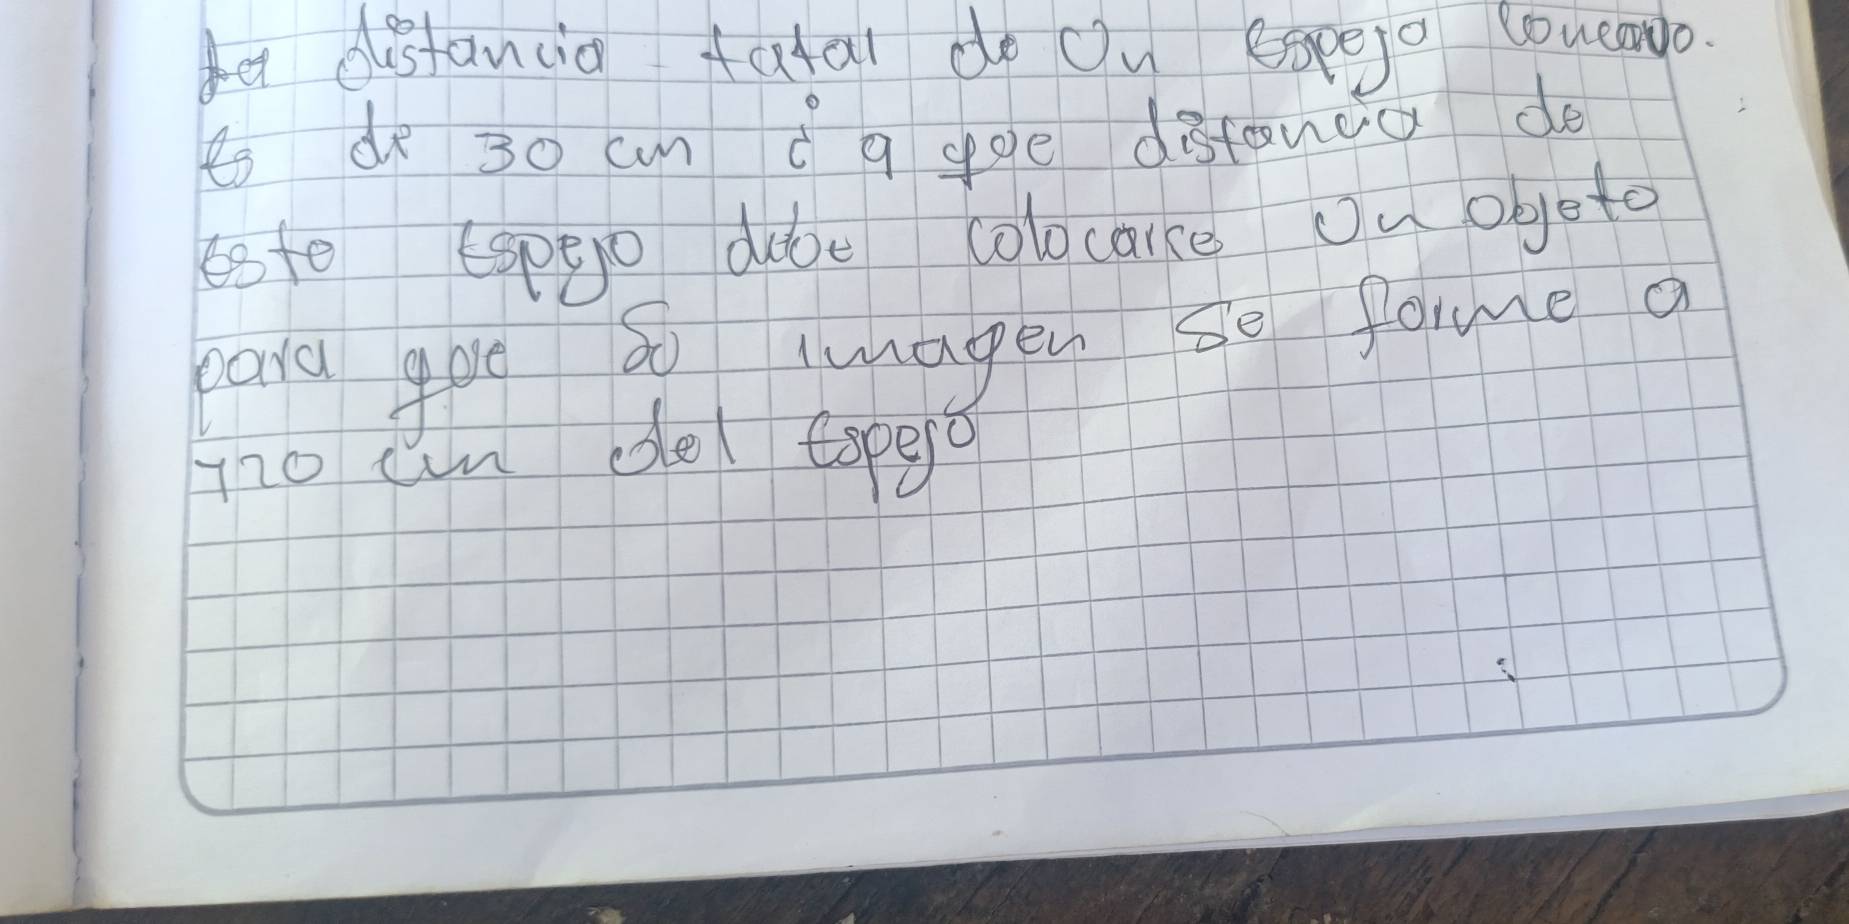 La distancia fatal de Un Espejo Concavo.
Es de 30 cm ¿ a que distancia de
este Espejo debe colocarse Un objeto
para que Su imagen se forme a
120 cm del Espejo